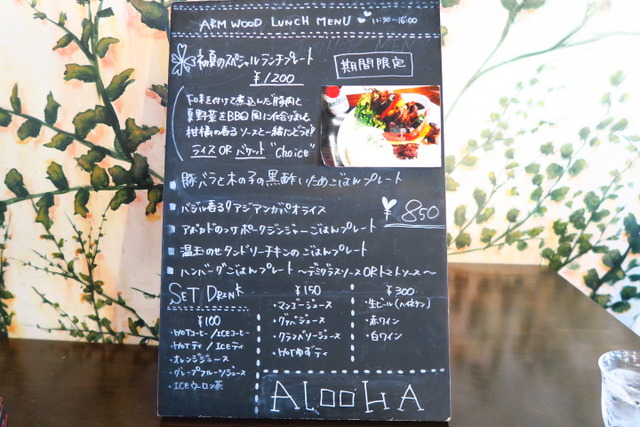 ARMWOOD LUNCH MENU 11:30-16:00
初夏のスペシャルランチプレート
¥1200
期間限定
下味を付けて煮込んだ豚肉と
夏野菜をBBQ風に仕上げました
柑橘の香るソースと一緒にどうぞ♪
ライス OR バケット "Choice"
豚バラと木の子の黒酢いためごはんプレート
バジル香る!アジアンガパオライス
¥850
アボカドのっけポークジンジャーごはんプレート
温玉のせタンドリーチキンのごはんプレート
ハンバーグごはんプレート ～デミグラスソース OR トマトソース～
SET DRINK
¥100
・HOTコーヒー/ICEコーヒー
・HOTティ / ICEティ
・オレンジジュース
・グレープフルーツジュース
・ICEウーロン茶
¥150
・マンゴージュース
・グァバジュース
・クランベリージュース
・HOTゆずティ
¥300
・生ビール
・赤ワイン
・白ワイン
ALOOHA